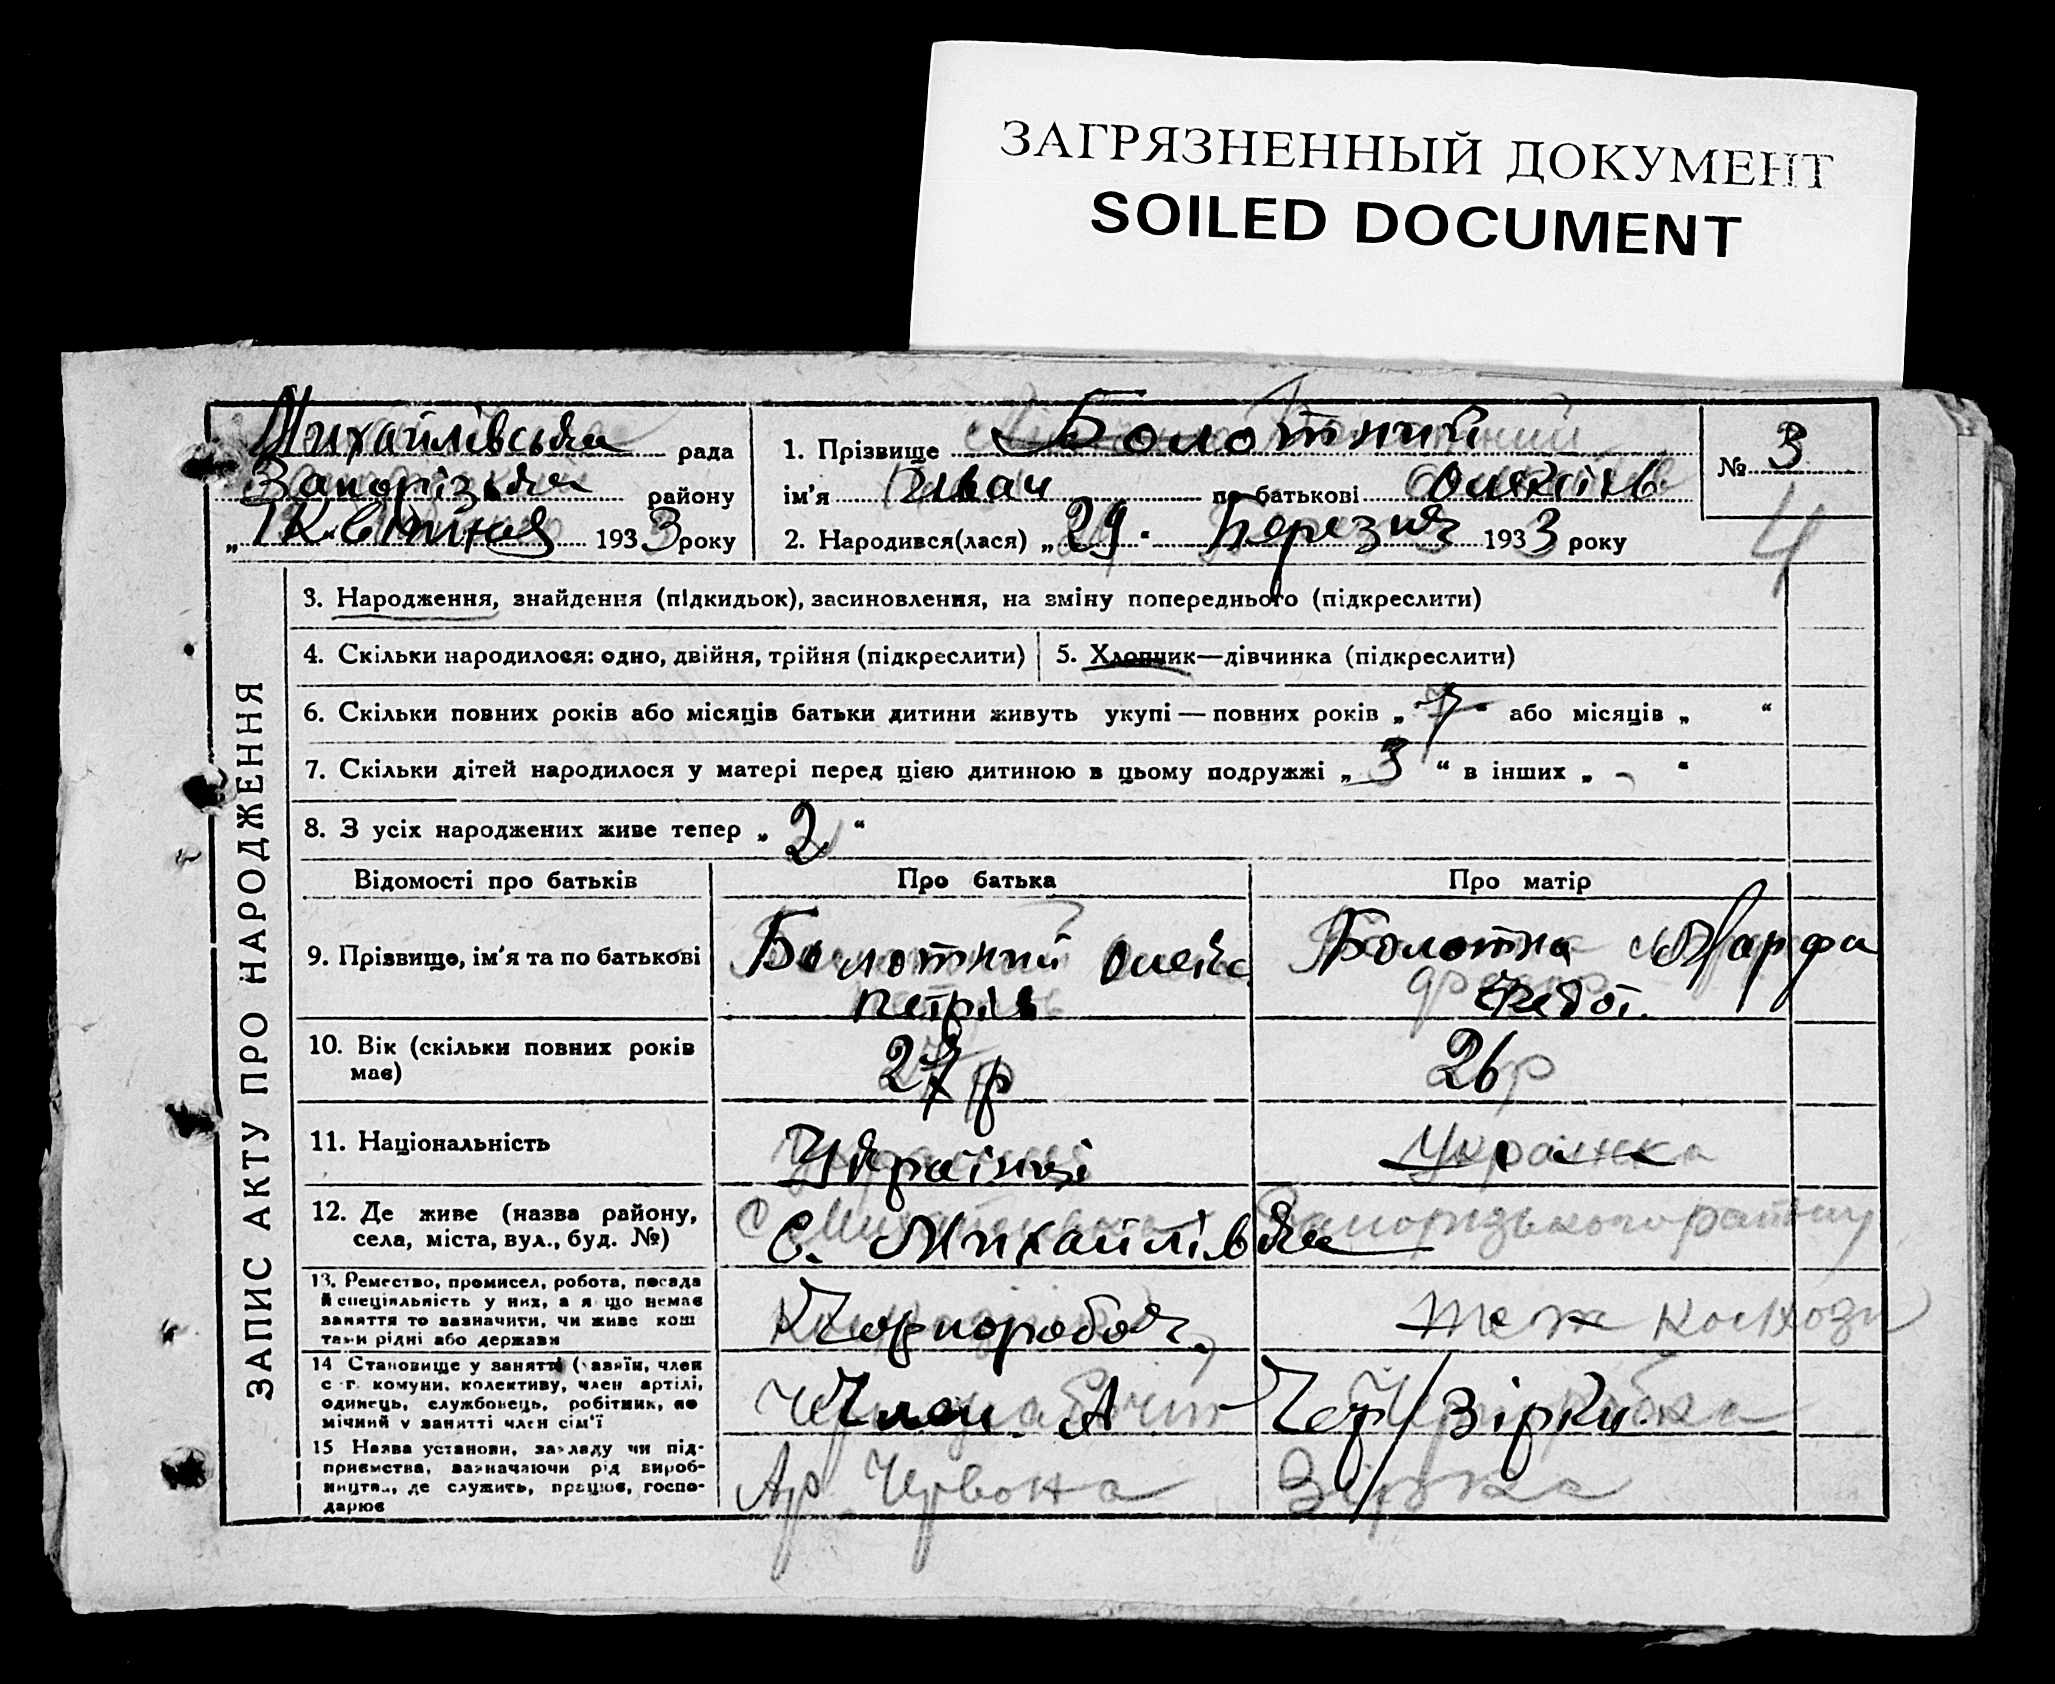 ЗАГРЯЗНЕННЫЙ ДОКУМЕНТ
SOILED DOCUMENT
Михайлівська рада
Запорізька району
„1 Квітня 1933 року
1. Прізвище Болотний
ім'я Іван по батькові Олексіїв
2. Народився(лася) „29" Березня 1933 року
№ 3
4
ЗАПИС АКТУ ПРО НАРОДЖЕННЯ
3. Народження, знайдення (підкидьок), засиновлення, на зміну попереднього (підкреслити)
4. Скільки народилося: одно, двійня, трійня (підкреслити)
5. Хлопчик—дівчинка (підкреслити)
6. Скільки повних років або місяців батьки дитини живуть укупі — повних років „7" або місяців „ "
7. Скільки дітей народилося у матері перед цією дитиною в цьому подружжі „3" в інших „-"
8. З усіх народжених живе тепер „2"
Відомості про батьків
Про батька
Про матір
9. Прізвище, ім'я та по батькові
Болотний Олекса
Петрів
Болотна Марфа
Федот.
10. Вік (скільки повних років
має)
27 р
26 р
11. Національність
Українці
Українка
12. Де живе (назва району,
села, міста, вул., буд. №)
с. Михайлівка
Запорізького району
13. Ремество, промисел, робота, посада
й спеціяльність у них, а якщо немає
заняття то зазначити, чи живе кош
тами рідні або держави
Чорнороб
теж колхозн
14 Становище у занятті (хазяїн, член
с.-г. комуни, колективу, член артілі,
одинець, службовець, робітник, по
мічний у занятті член сім'ї
Член А Чер/Зірки.
15 Назва установи, закладу чи під-
приємства, зазначаючи рід вироб-
ництва, де служить, працює, госпо-
дарює
Ар Червона Зірка